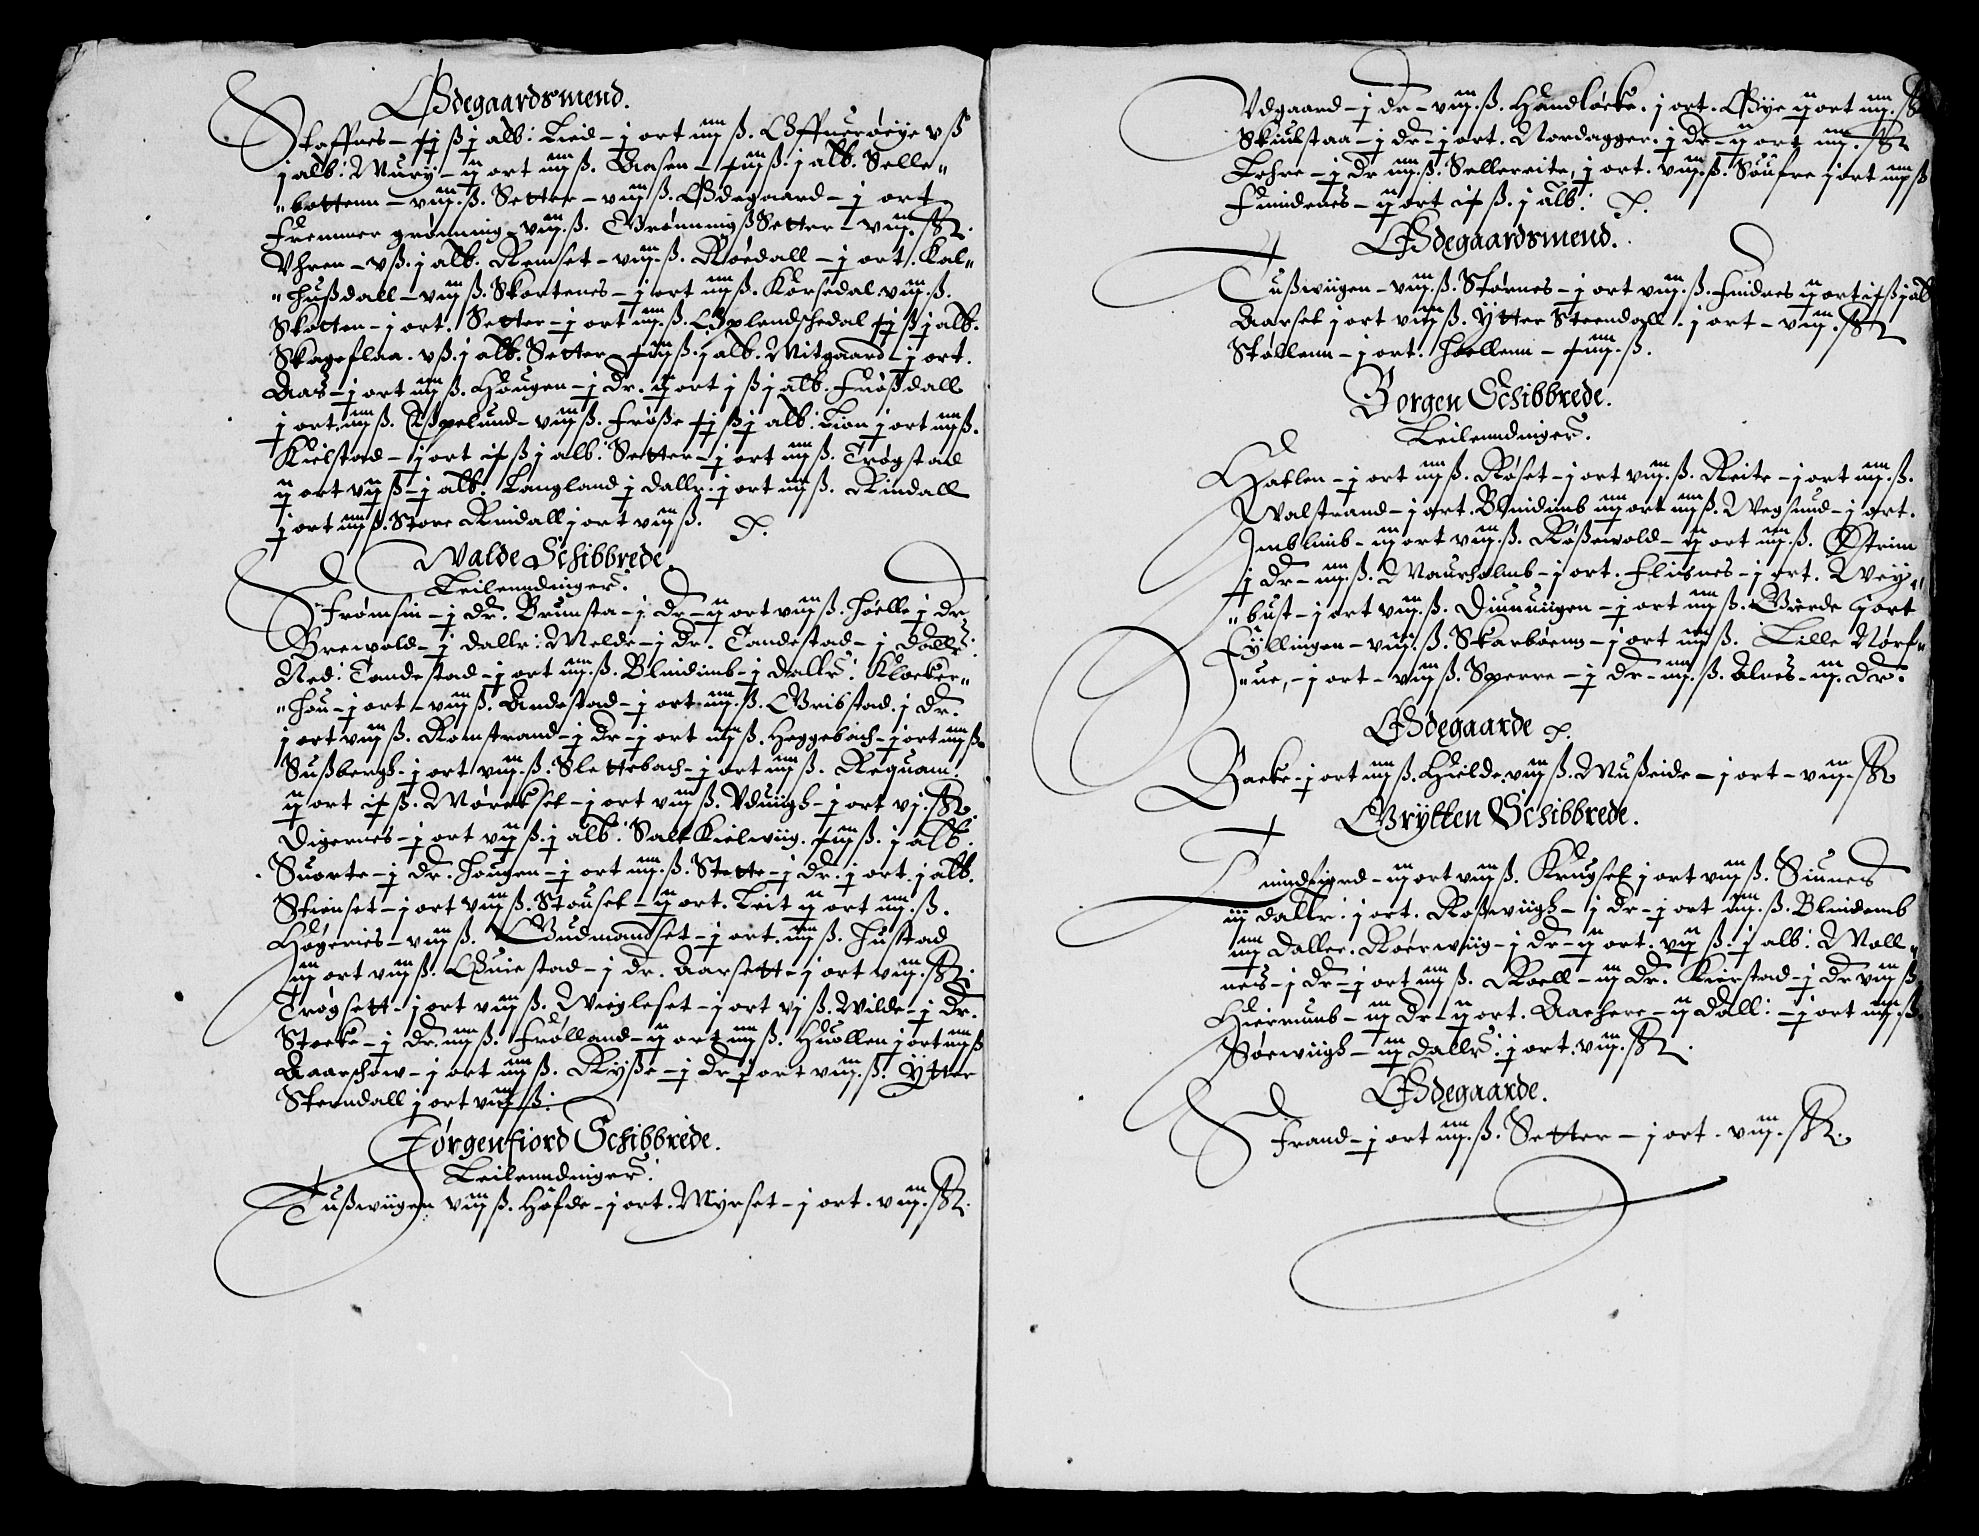 Ødegaardsmend.
Staffnes - ß j alb: Lied - j ort iiij ß. Øffuerøeye v ß
j alb: Mury - ij ort iiij ß. Aasen - ß. j alb. Selle„
„bottenn - viij. ß. Setter - viij ß. Ødegaard - j ort.
Fremmer grønning - viij. ß. Grønningß Setter - viij. ß.
Vhren - v ß. j alb. Remset - viij ß. Røedall - j ort. Kal„
„hußdall - viij ß. Skortenes - j ort iiij ß. Korsedal viij ß.
Skotten - j ort. Setter - j ort iiij ß. Oplendschedal ß j alb.
Skageflaa. v ß. j alb. Setter ß. j alb. Mitgaard - j ort.
Aas - j ort iiij ß. Hougen - j dr. ij ort j ß j alb. Frøßdall
j ort. iiij ß. Espelund - viij ß. Frøße ß j alb. Lion j ort iiij ß.
Kielstad - j ort ß j alb: Setter - j ort iiij ß. Trøgstad
ij ort vij ß - j alb. Langland j dallr. j ort iiij ß. Rindall
j ort iiij ß. Store Rindall j ort viij ß.
Walde Schibbrede.
Leilenndinger.
Frømsin - j dr. Brunsta - j dr - ij ort viij ß. Høelle j dr.
Brewold - j dallr: Melde - j dr. Tandestad - j dallr.
Ned: Tandestad - j ort iiij ß. Blindimb - j dallr. Klocker„
„hou - j ort - viij ß. Andestad - j ort iiij ß. Gribstad. j dr.
j ort viij ß. Romstrand - j dr - j ort iiij ß. Heggebach - j ort iiij ß.
Sußbergh - j ort viij. ß. Slettebach - j ort iiij ß. Requam.
ij ort ß. Mørckset - j ort viij ß. Vduiigh - j ort vj. ß.
Digernes - j ort vij ß. j alb. Salt Kielwiig. ß. j alb.
Suorte - j dr. Hougen - j ort iiij. ß. Stette - j dr. j ort. j alb.
Stienset - j ort viij ß. Stouset - ij ort. Leit ij ort iiij. ß.
Høgenes - viij ß. Gudmandset - j ort. iiij ß. Justad
iij ort viij ß. Quiestad - j dr. Aarsett - j ort viij. ß.
Trøgsett - j ort viij ß. Wiegleset - j ort vj ß. Wilde - j dr.
Stocke - j dr. iiij ß. Frølland - ij ort iiij ß. Huollen j ort iiij ß
Aaarschow - j ort iiij ß. Ryße - j dr j ort viij ß. Ytter
Steendall j ort viij ß.
Jørgenfiord Schibbrede.
Leilenndinger.
Tußwiigen viij ß. Hofde - j ort. Myrset - j ort. viij. ß.
Vdgaard - j dr - viij. ß. Handløcke. j ort. Øye ij ort iiij. ß
Skiulstaa - j dr - j ort. Nordagger. j dr - ij ort iiij. ß
Lehre - j dr iiij ß. Sellereite, j ort. viij. ß. Soufre j ort iiij ß
Finndenes - ij ort ß. j alb.
Ødegaardsmend.
Tußwiigen - viij. ß. Størnes - j ort viij. ß. Findnes ij ort ß j alb
Aarset j ort viij ß. Ytter Steendall. j ort - viij. ß
Støllenn - j ort. Hoellenn - ß.
Borgen Schibbrede.
Leilenndinger.
Hatlen - j ort iiij ß. Røset - j ort viij ß. Reite - j ort iiij. ß.
Walstrand - j ort. Blindimb iiij ort iiij ß. Wegsund - j ort.
Emblimb - iij ort viij. ß. Røßewold - ij ort iiij. ß. Østrim
j dr - iiij ß. Maurholmb - j ort. Flisnes - j ort. Wey„
„bust - j ort viij ß. Diuuuiigen - j ort iiij ß. Gierde j ort
Fyllingen - viij. ß. Skarbøenn - j ort iiij ß. Lille Nørf„
„ue, - j ort - viij ß. Sperre - j dr - iiij. ß. Alnes - iij. dr.
Ødegaarde
Backe - j ort iiij ß. Hielde viij ß. Mußeide - j ort - viij. ß
Grytten Schibbrede.
Tindfiord - iij ort viij ß. Krugset j ort viij ß. Sinnes
iij dallr. j ort. Roßewiigh - j dr - j ort iiij. ß. Blindemb
iiij daller. Røerwiig - j dr - ij ort. vij ß. j alb: Woll„
nes - j dr - j ort iiij ß. Roell - iij dr. Kierstad - j dr viij ß.
Hierrumb - iij dr - ij ort. Aachere - ij dall: - j ort iiij. ß.
Sørwiigh - iij dallr. j ort. viij. ß.
Ødegaarde.
Frand - j ort iiij. ß. Setter - j ort. viij. ß.